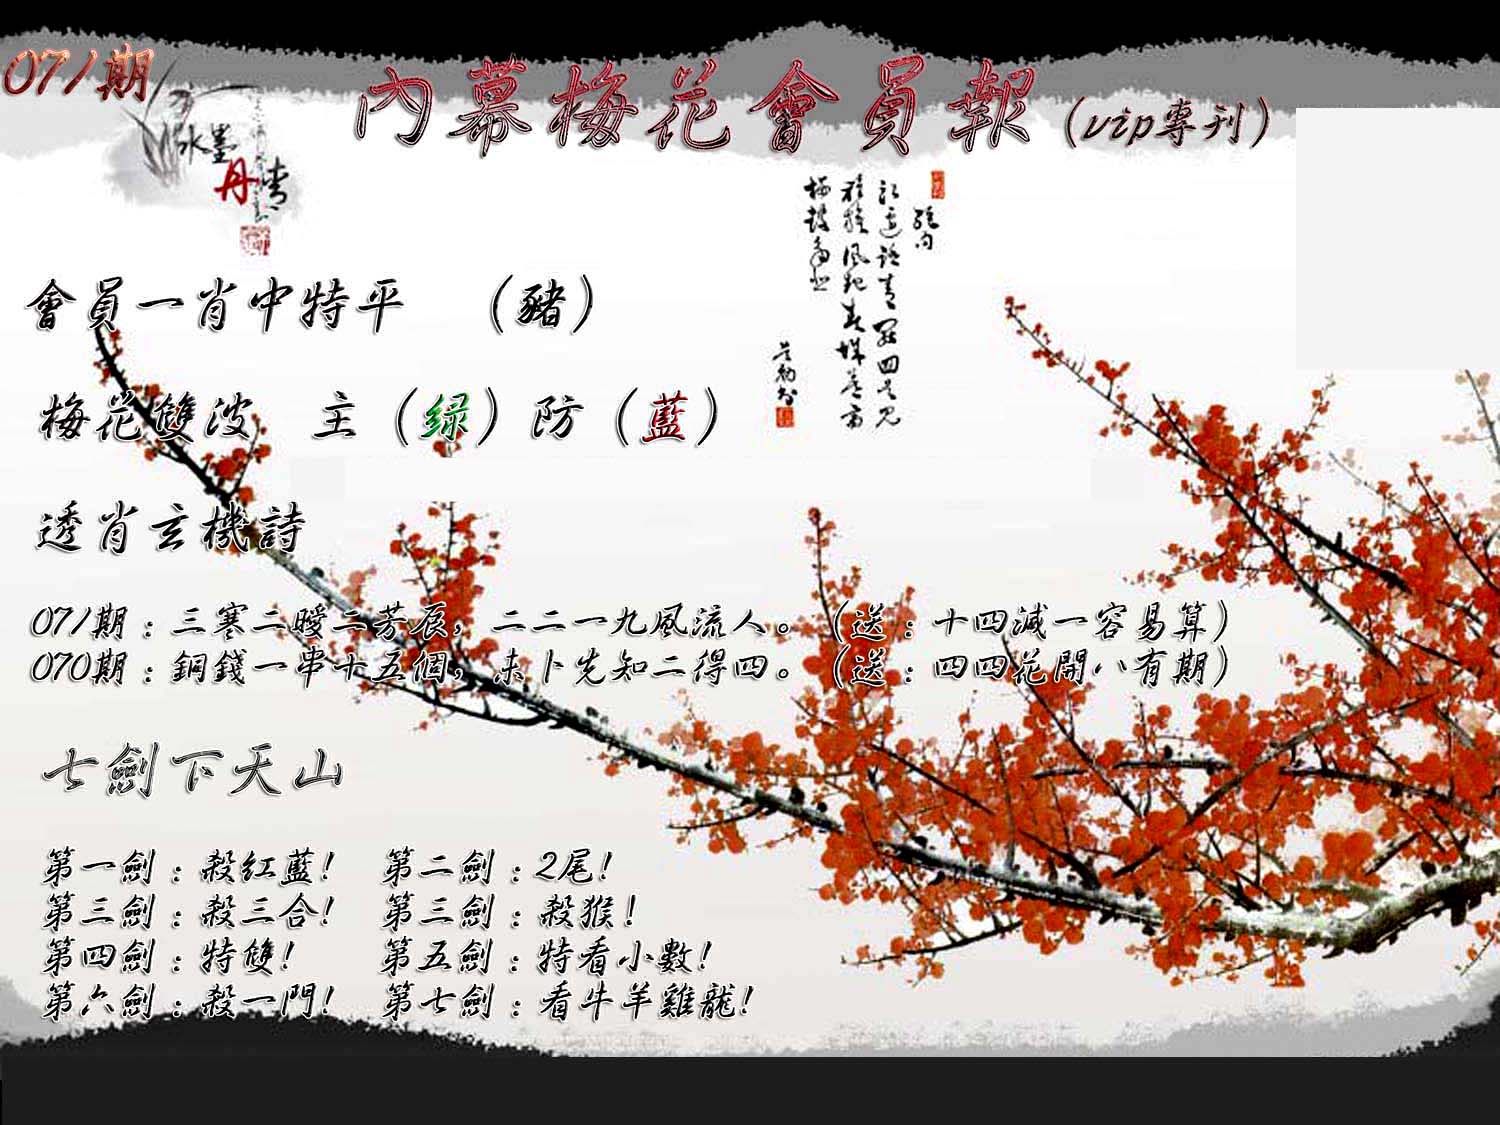 071期
內幕梅花會員報(vip專刊)
水墨
丹青
絕句
會員一肖中特平 (豬)
梅花雙波 主(绿)防(藍)
透肖玄機詩
071期:三寒二曖二芳辰,二二一九風流人。(送:十四減一容易算)
070期:銅錢一串十五個,未卜先知二得四。(送:四四花開八有期)
七劍下天山
第一劍:殺紅藍! 第二劍:2尾!
第三劍:殺三合! 第三劍:殺猴!
第四劍:特雙! 第五劍:特看小數!
第六劍:殺一門! 第七劍:看牛羊雞龍!